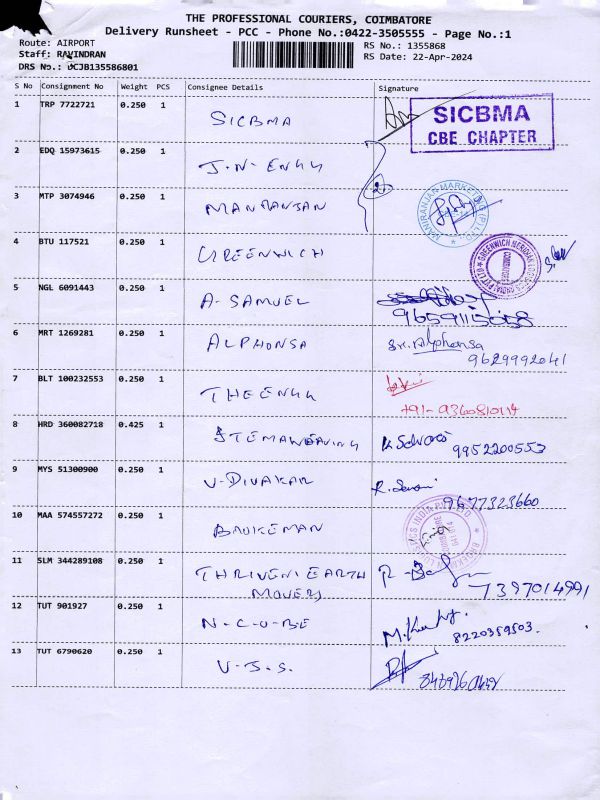 THE PROFESSIONAL COURIERS, COIMBATORE
Delivery Runsheet - PCC - Phone No.:0422-3505555 - Page No.:1
Route: AIRPORT RS No.: 1355868
Staff: RAVINDRAN RS Date: 22-Apr-2024
DRS No.: DCJB135586801
S No Consignment No Weight PCS Consignee Details Signature
1 TRP 7722721 0.250 1 SICBMA SICBMA
CBE CHAPTER
2 EDQ 15973615 0.250 1 J.N-ENGG
3 MTP 3074946 0.250 1 MANRANJAN
4 BTU 117521 0.250 1 GREENWICH
5 NGL 6091443 0.250 1 A-SAMUEL
6 MRT 1269281 0.250 1 ALPHONSA Sr. Alphonsa
9629992041
7 BLT 100232553 0.250 1 THEENGG
+91-9360810114
8 HRD 360082718 0.425 1 STEMAWEAVING
9952200553
9 MYS 51300900 0.250 1 V-DIVAKAR
9677323660
10 MAA 574557272 0.250 1
11 SLM 344289108 0.250 1 THRIVENI EARTH
MOVERS 7397014991
12 TUT 901927 0.250 1 N-C-U-BE
8220359503.
13 TUT 6790620 0.250 1 V.J.S.